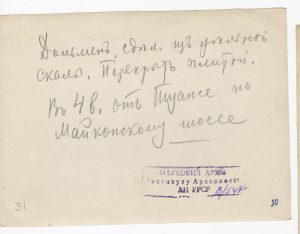 Дольмен, сдѣл. изъ цѣльной
скалы. Перекрытъ плитой.
Въ 4 в. отъ Туапсе по
Майкопскому шоссе
НАУКОВИЙ АРХІВ
Інституту Археології
АН УРСР
31
30